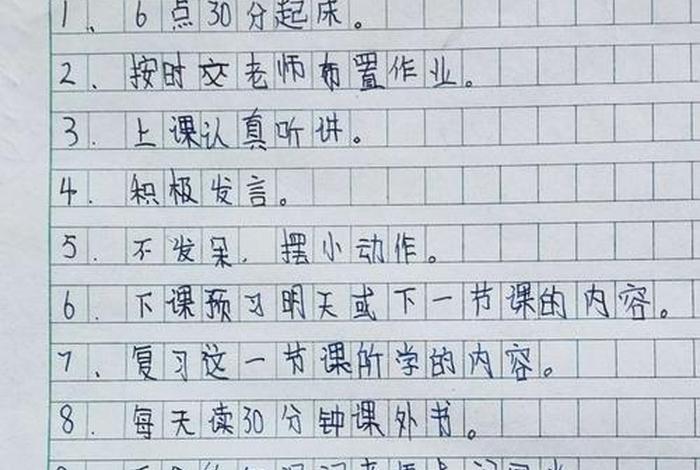 1、6点30分起床。
2、按时交老师布置作业。
3、上课认真听讲。
4、积极发言。
5、不发呆,摆小动作。
6、下课预习明天或下一节课的内容。
7、复习这一节课所学的内容。
8、每天读30分钟课外书。